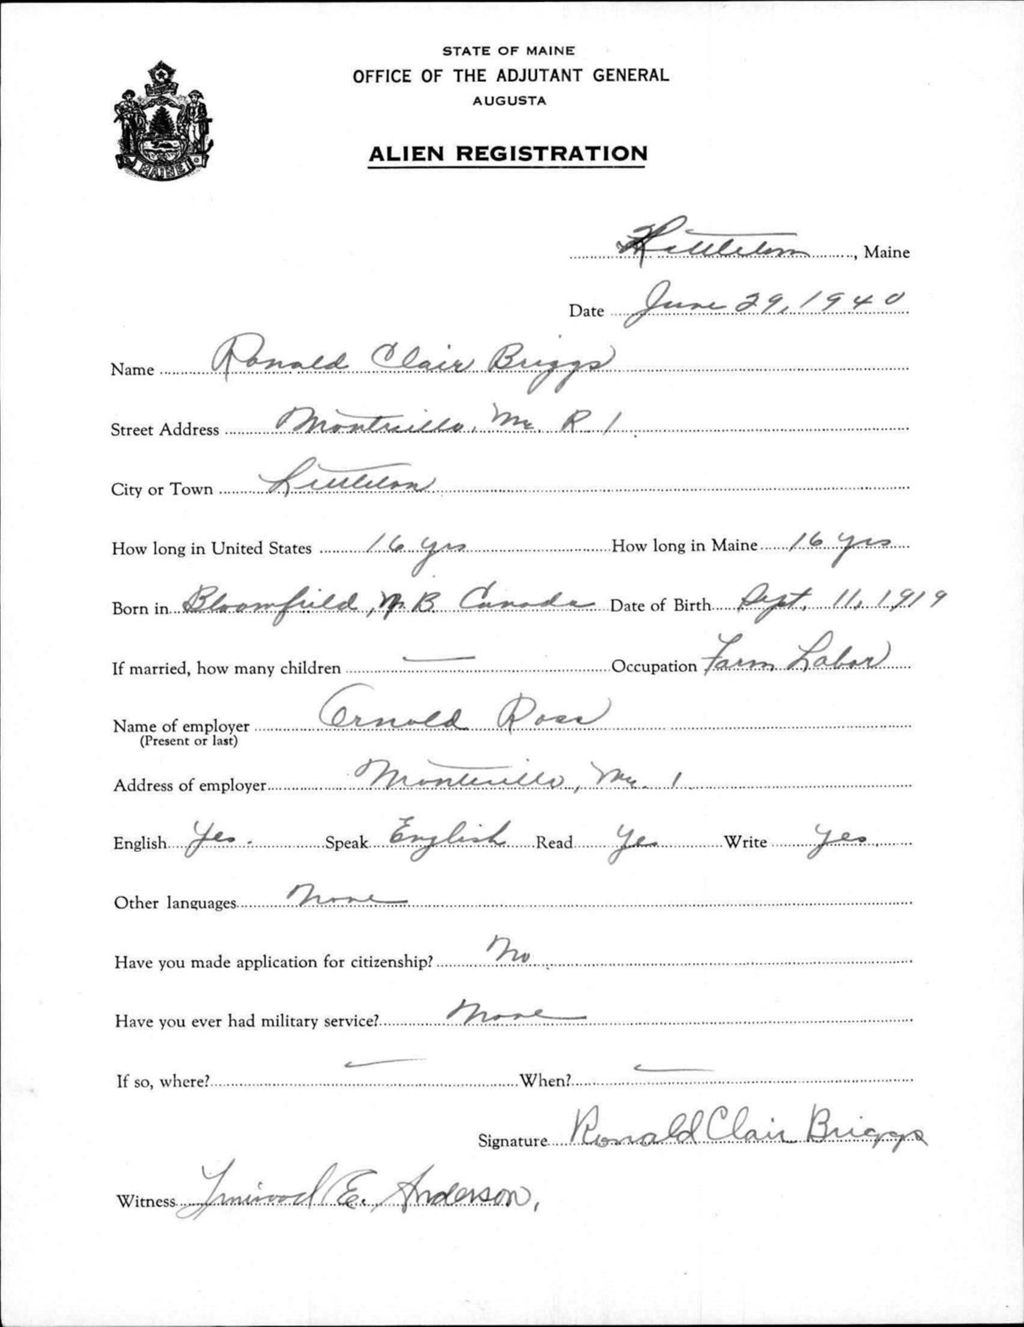 STATE OF MAINE
OFFICE OF THE ADJUTANT GENERAL
AUGUSTA
MAINE
ALIEN REGISTRATION
Littleton, Maine
Date June 29, 1940
Name Ronald Clair Briggs
Street Address Monticello, Me. R 1
City or Town Littleton
How long in United States 16 yrs How long in Maine 16 yrs
Born in Bloomfield, N. B. Canada Date of Birth Sept. 11, 1919
If married, how many children — Occupation Farm Labor
Name of employer Arnold Ross
(Present or last)
Address of employer Monticello, Me. 1
English Yes. Speak English Read Yes Write Yes.
Other languages None
Have you made application for citizenship? No
Have you ever had military service? None
If so, where? — When? —
Signature Ronald Clair Briggs
Witness Linwood E. Anderson,